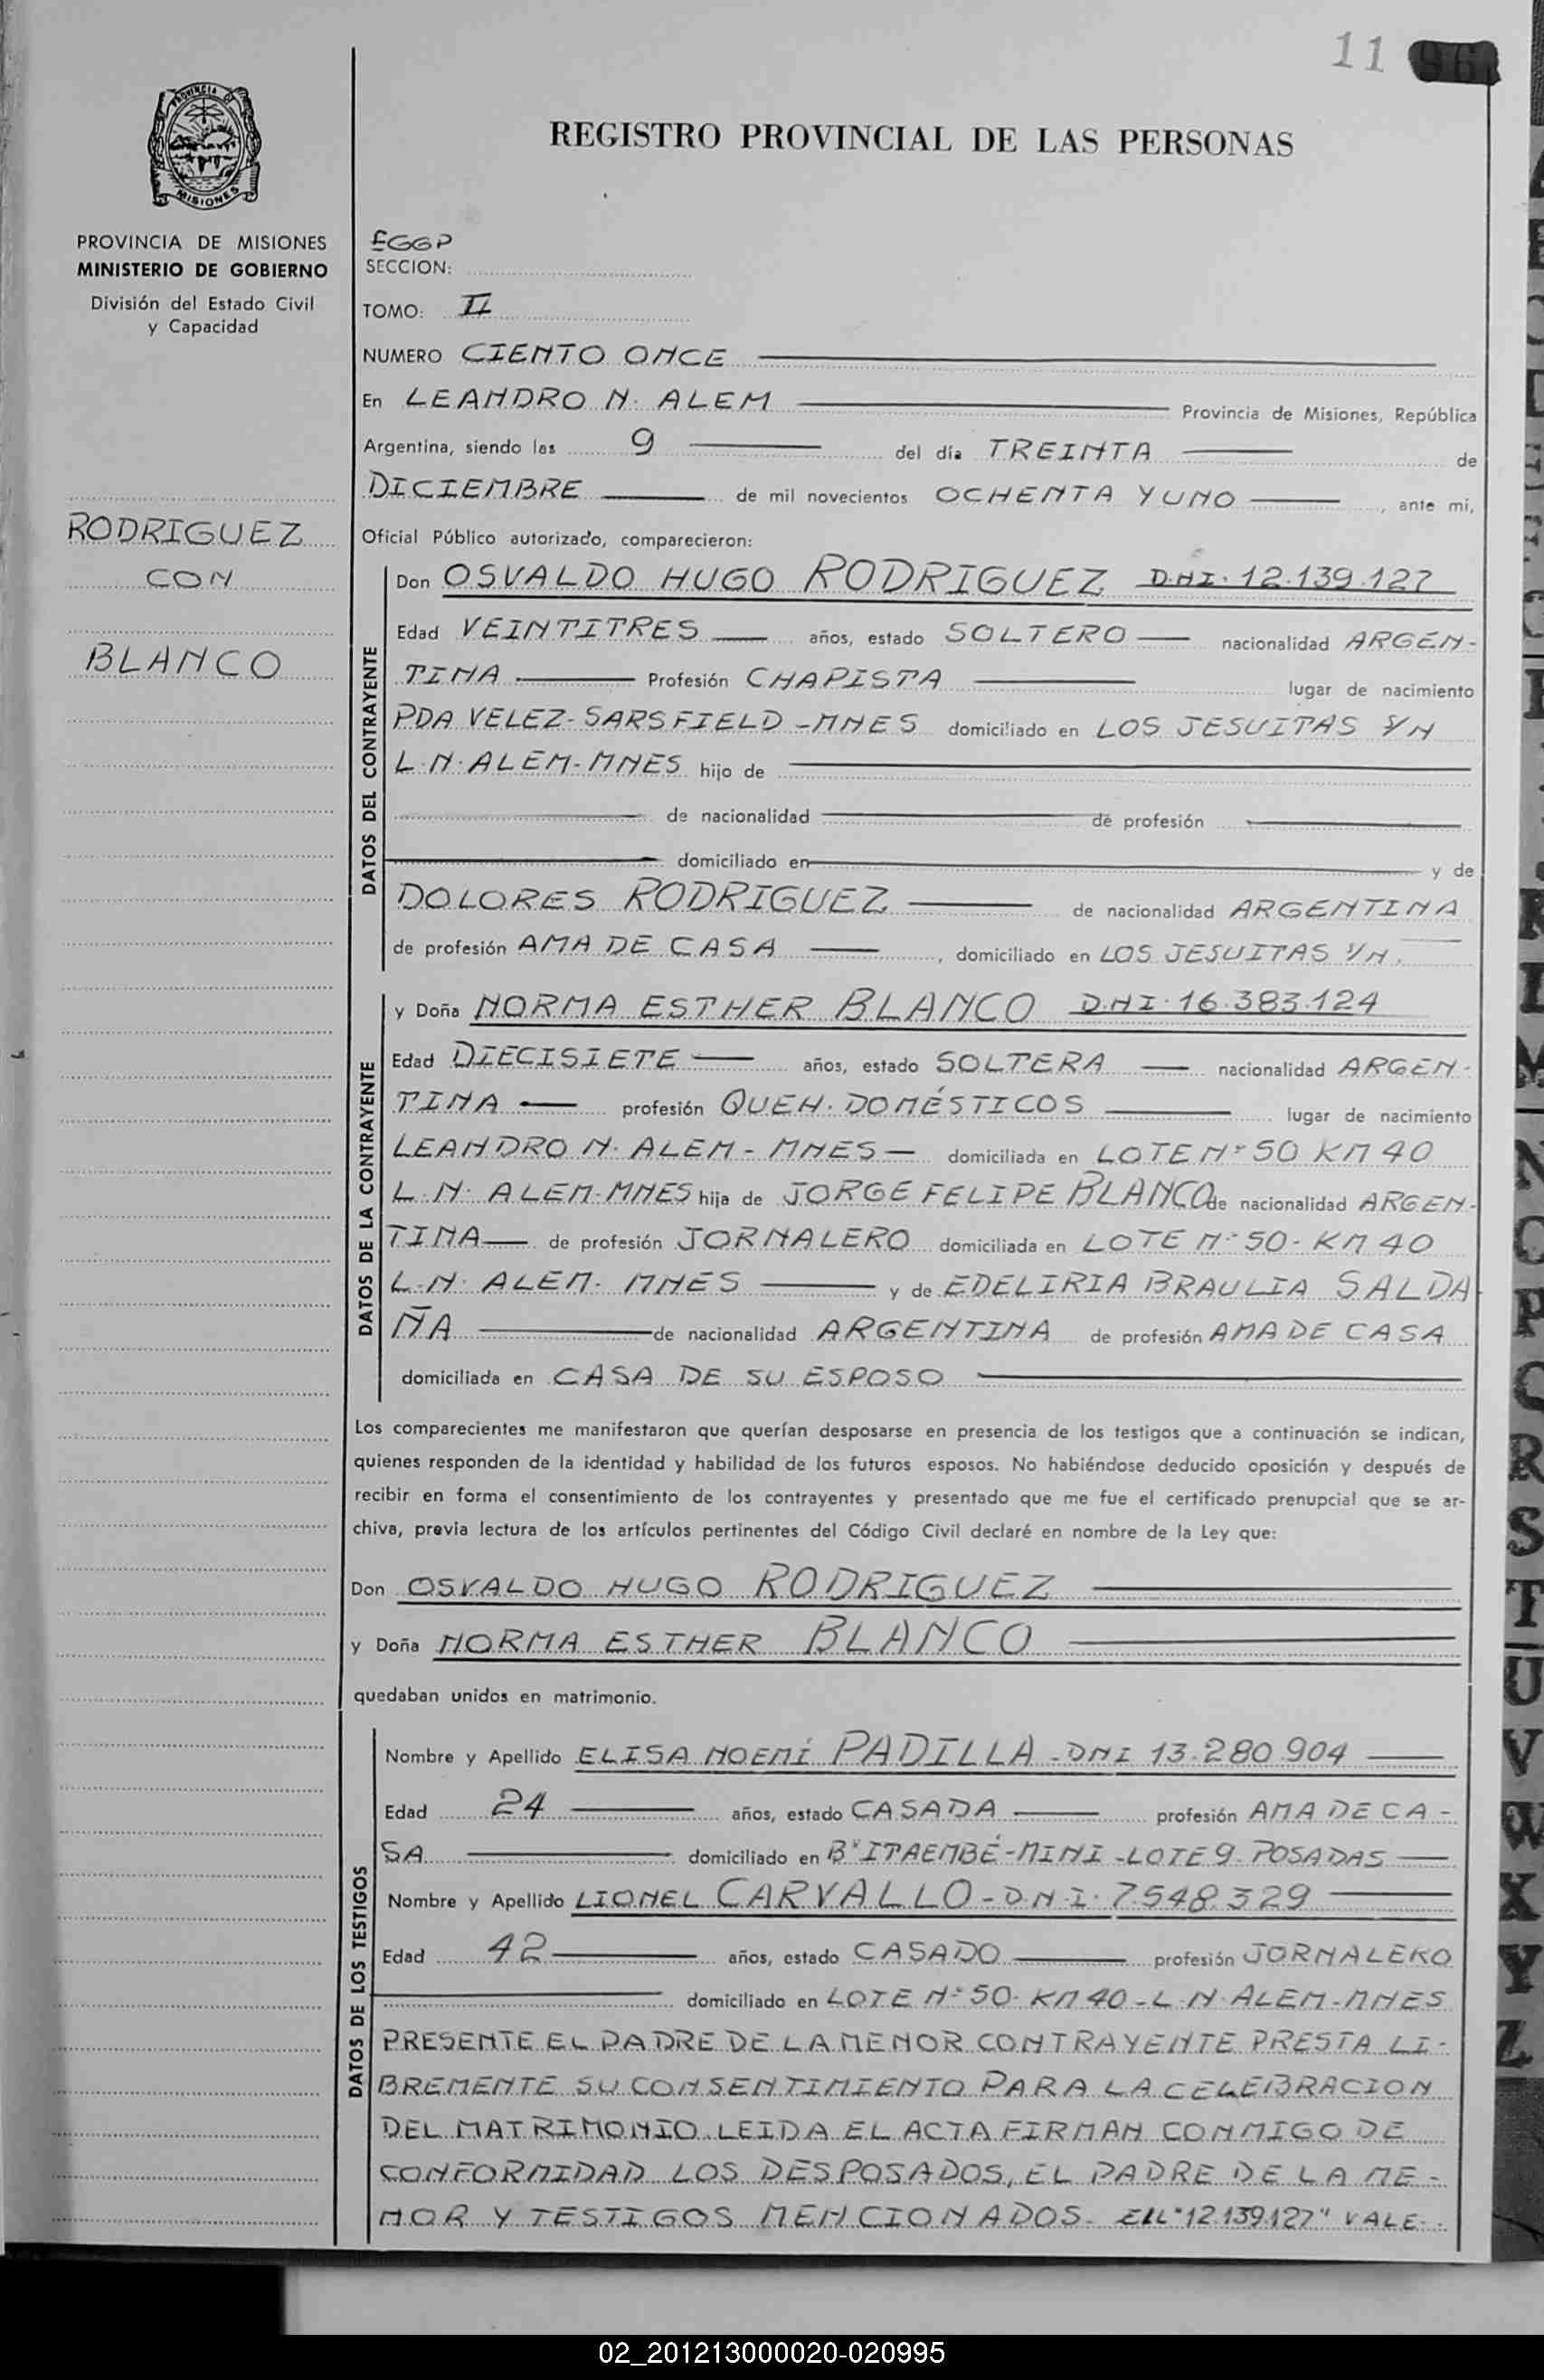 11
PROVINCIA DE MISIONES
REGISTRO PROVINCIAL DE LAS PERSONAS
PROVINCIA DE MISIONES
MINISTERIO DE GOBIERNO
División del Estado Civil
y Capacidad
RODRIGUEZ
CON
BLANCO
EGGP
SECCION:
TOMO: II
NUMERO CIENTO ONCE
En LEANDRO N. ALEM Provincia de Misiones, República
Argentina, siendo las 9 del día TREINTA de
DICIEMBRE de mil novecientos OCHENTA Y UNO, ante mí,
Oficial Público autorizado, comparecieron:
DATOS DEL CONTRAYENTE
Don OSVALDO HUGO RODRIGUEZ D.N.I. 12.139.127
Edad VEINTITRES años, estado SOLTERO nacionalidad ARGEN-
TINA Profesión CHAPISTA lugar de nacimiento
PDA VELEZ-SARSFIELD-MNES domiciliado en LOS JESUITAS S/N
L.N.ALEM-MNES hijo de
de nacionalidad de profesión
domiciliado en y de
DOLORES RODRIGUEZ de nacionalidad ARGENTINA
de profesión AMA DE CASA, domiciliado en LOS JESUITAS S/N.
DATOS DE LA CONTRAYENTE
y Doña NORMA ESTHER BLANCO D.N.I. 16.383.124
Edad DIECISIETE años, estado SOLTERA nacionalidad ARGEN-
TINA profesión QUEH. DOMÉSTICOS lugar de nacimiento
LEANDRO N. ALEM - MNES domiciliada en LOTE Nº 50 KM 40
L.N. ALEM-MNES hija de JORGE FELIPE BLANCO de nacionalidad ARGEN-
TINA de profesión JORNALERO domiciliada en LOTE Nº 50 - KM 40
L.N. ALEM. MNES y de EDELIRIA BRAULIA SALDA
ÑA de nacionalidad ARGENTINA de profesión AMA DE CASA
domiciliada en CASA DE SU ESPOSO
Los comparecientes me manifestaron que querían desposarse en presencia de los testigos que a continuación se indican,
quienes responden de la identidad y habilidad de los futuros esposos. No habiéndose deducido oposición y después de
recibir en forma el consentimiento de los contrayentes y presentado que me fue el certificado prenupcial que se ar-
chiva, previa lectura de los artículos pertinentes del Código Civil declaré en nombre de la Ley que:
Don OSVALDO HUGO RODRIGUEZ
y Doña NORMA ESTHER BLANCO
quedaban unidos en matrimonio.
DATOS DE LOS TESTIGOS
Nombre y Apellido ELISA NOEMÍ PADILLA - DNI 13.280.904
Edad 24 años, estado CASADA profesión AMA DE CA-
SA domiciliado en Bº ITAEMBÉ-MINI - LOTE 9 - POSADAS
Nombre y Apellido LIONEL CARVALLO - D.N.I. 7.548.329
Edad 42 años, estado CASADO profesión JORNALERO
domiciliado en LOTE Nº 50 - KM 40 - L.N. ALEM - MNES
PRESENTE EL PADRE DE LA MENOR CONTRAYENTE PRESTA LI-
BREMENTE SU CONSENTIMIENTO PARA LA CELEBRACION
DEL MATRIMONIO. LEIDA EL ACTA FIRMAN CONMIGO DE
CONFORMIDAD LOS DESPOSADOS, EL PADRE DE LA ME-
NOR Y TESTIGOS MENCIONADOS. "12.139.127" VALE.
02_201213000020-020995